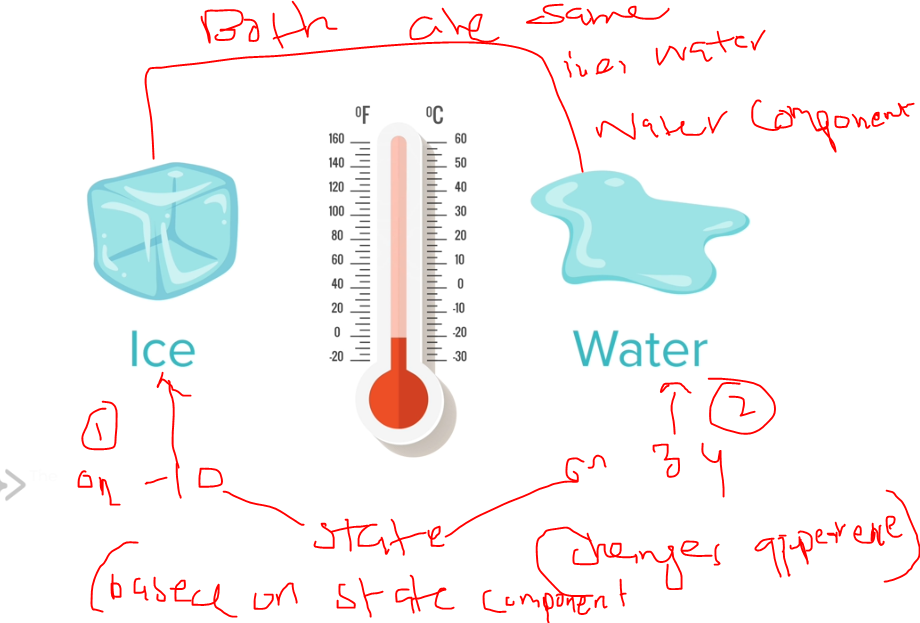 Both are same
i.e, water
Water Component
°F °C
160 60
140 50
120 40
100 30
80 20
60 10
40 0
20 -10
0 -20
-20 -30
Ice Water
1 2
on -10 on 34
state
(based on state component
(changes apperene)